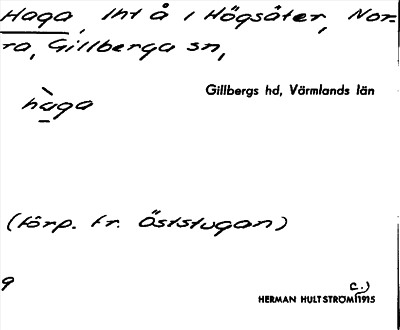 Haga, Int å i Högsäter, Nor-
ra, Gillberga sn,
Gillbergs hd, Värmlands län
hàga
(törp. fr. Öststugan)
9
c.)
HERMAN HULTSTRÖM 1915